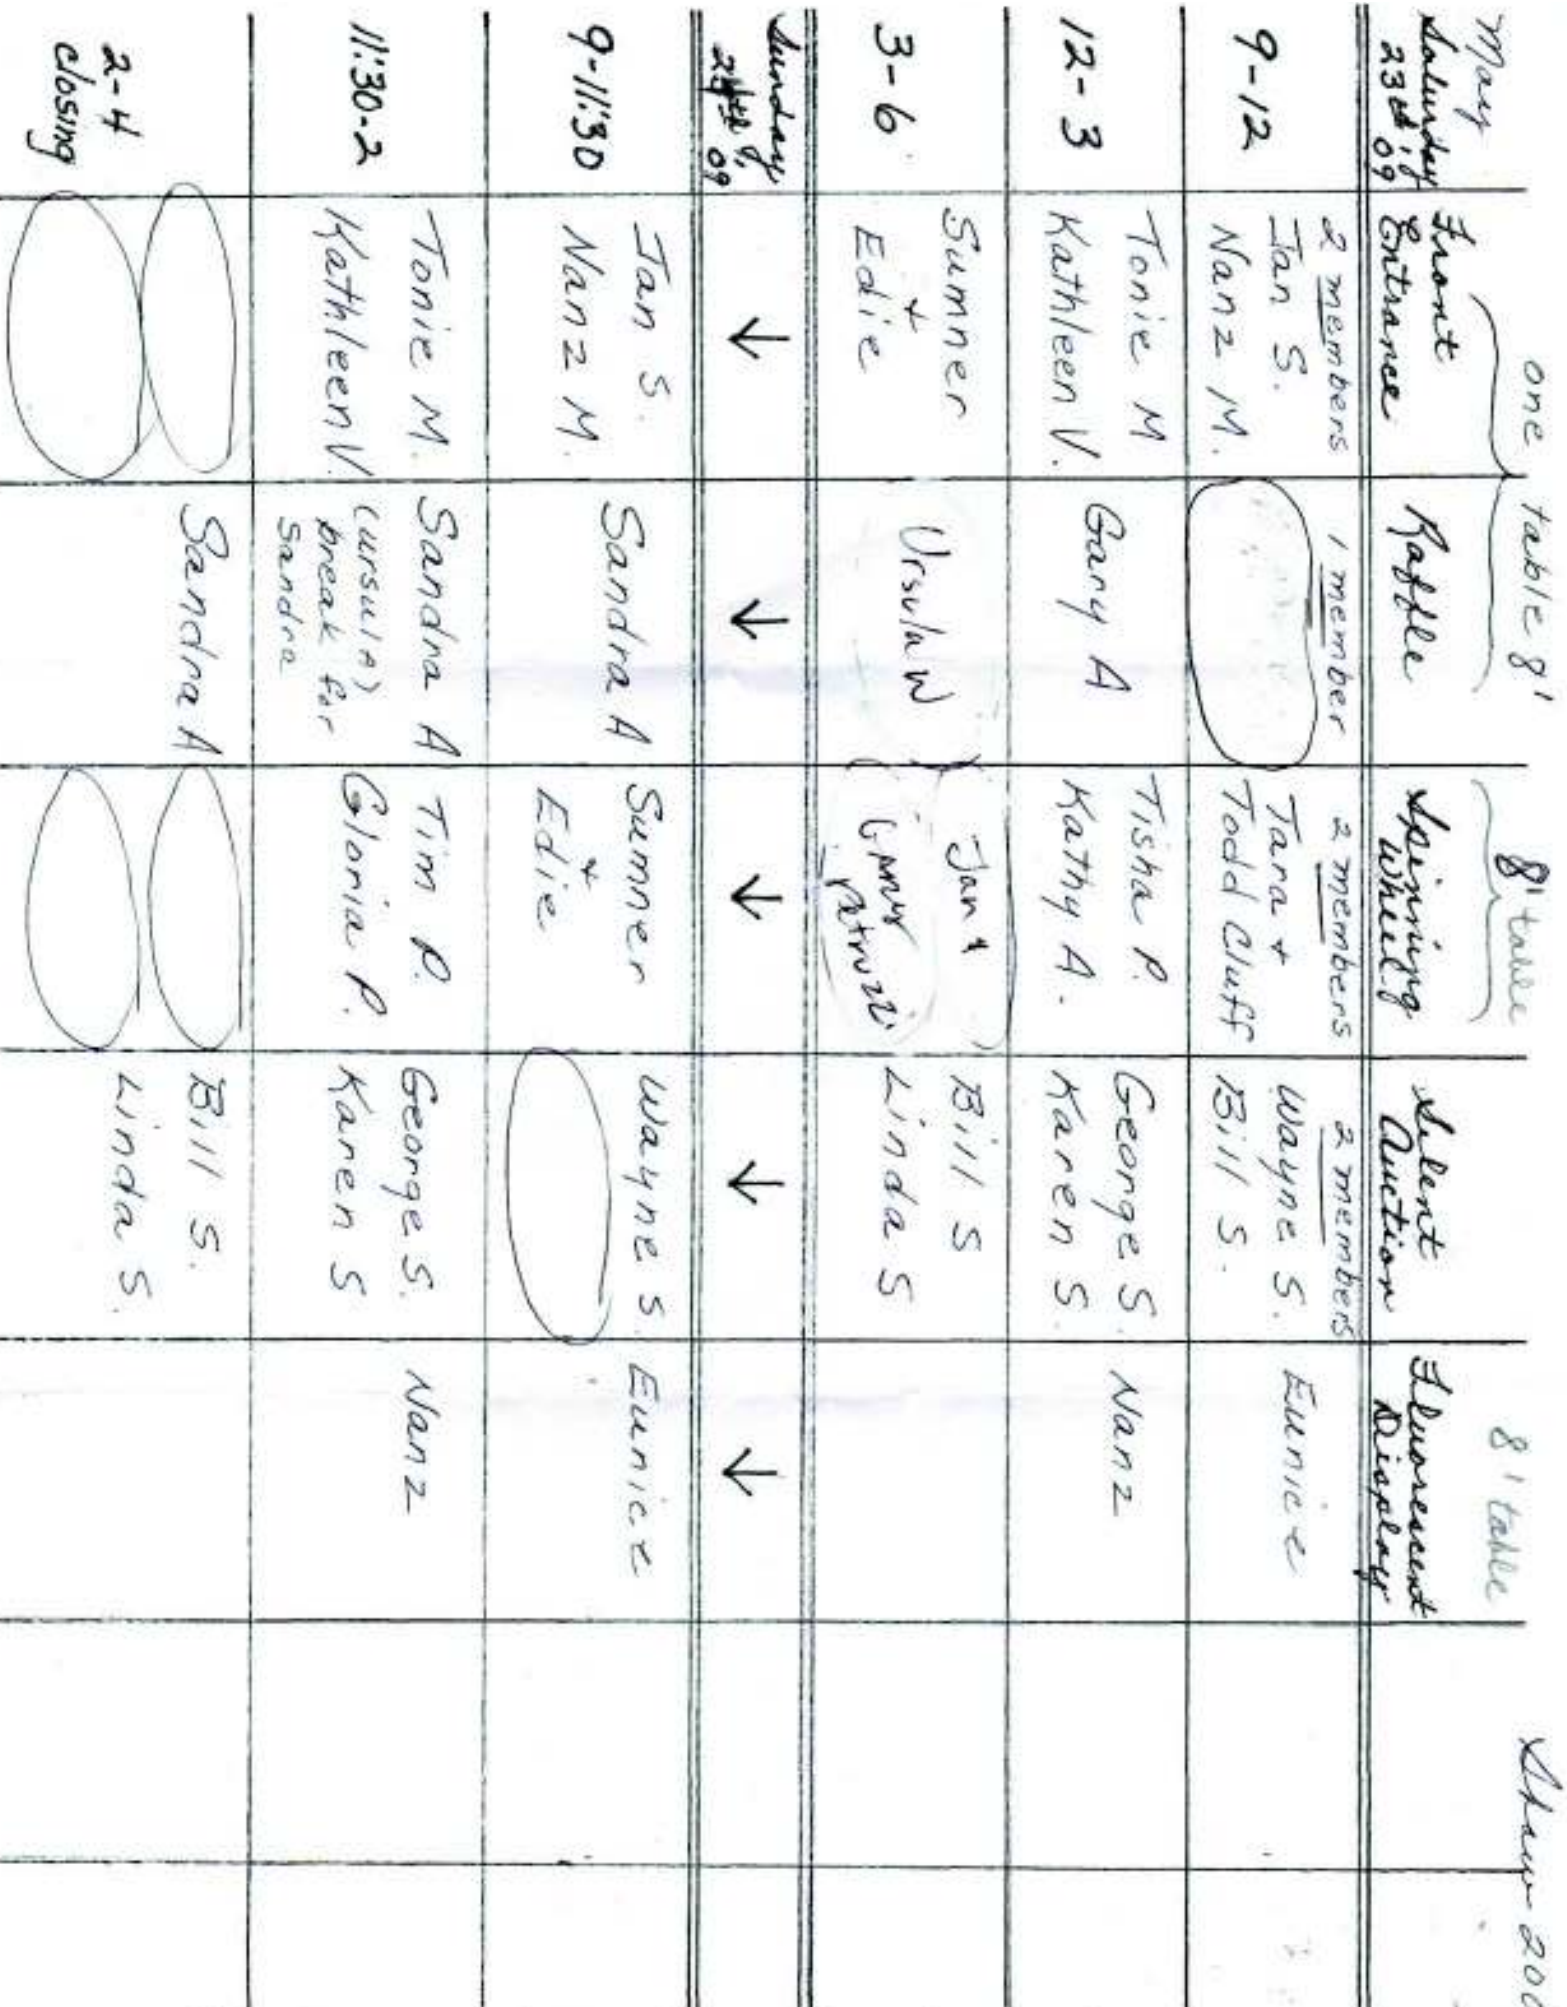 one table 8'
8' table
8' table
Show 200
May
Saturday
23rd, 09
Front
Entrance
Raffle
Spinning
Wheel
Silent
Auction
Fluorescent
Display
2 members
1 member
2 members
2 members
9-12
Jan S.
Nanz M.
Tara +
Todd Cluff
Wayne S.
Bill S.
Eunice
12-3
Tonie M
Kathleen V.
Gary A
Tisha P.
Kathy A.
George S.
Karen S.
Nanz
3-6
Sumner
+
Edie
Ursula W
Jan &
Petruzzi
Bill S
Linda S
Sunday
24th, 09
↓ ↓ ↓ ↓ ↓
9-11:30
Jan S.
Nanz M.
Sandra A
Sumner
+
Edie
Wayne S.
Eunice
11:30-2
Tonie M.
Kathleen V.
Sandra A
(ursula)
break for
Sandra
Tim P.
Gloria P.
George S.
Karen S
Nanz
2-4
closing
Sandra A
Bill S.
Linda S.